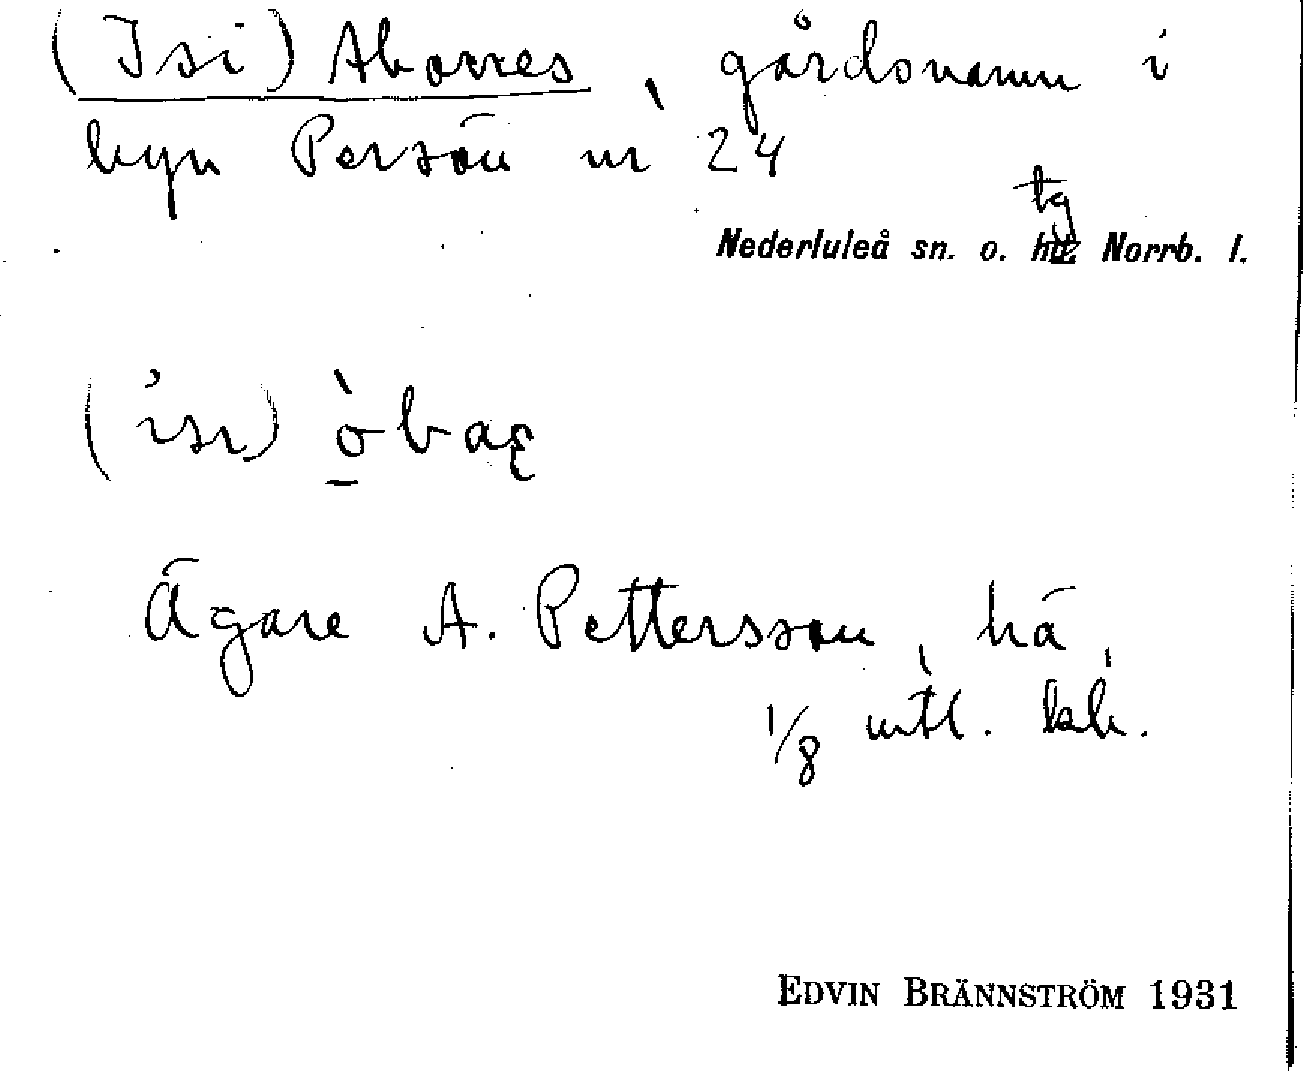 (Isi) Aborres, gårdsnamn i
byn Persön nr 24
tg
Nederluleå sn. o. Norrb. l.
Ägare A. Pettersson, hä,
1/8 mtl. kh.
EDVIN BRÄNNSTRÖM 1931